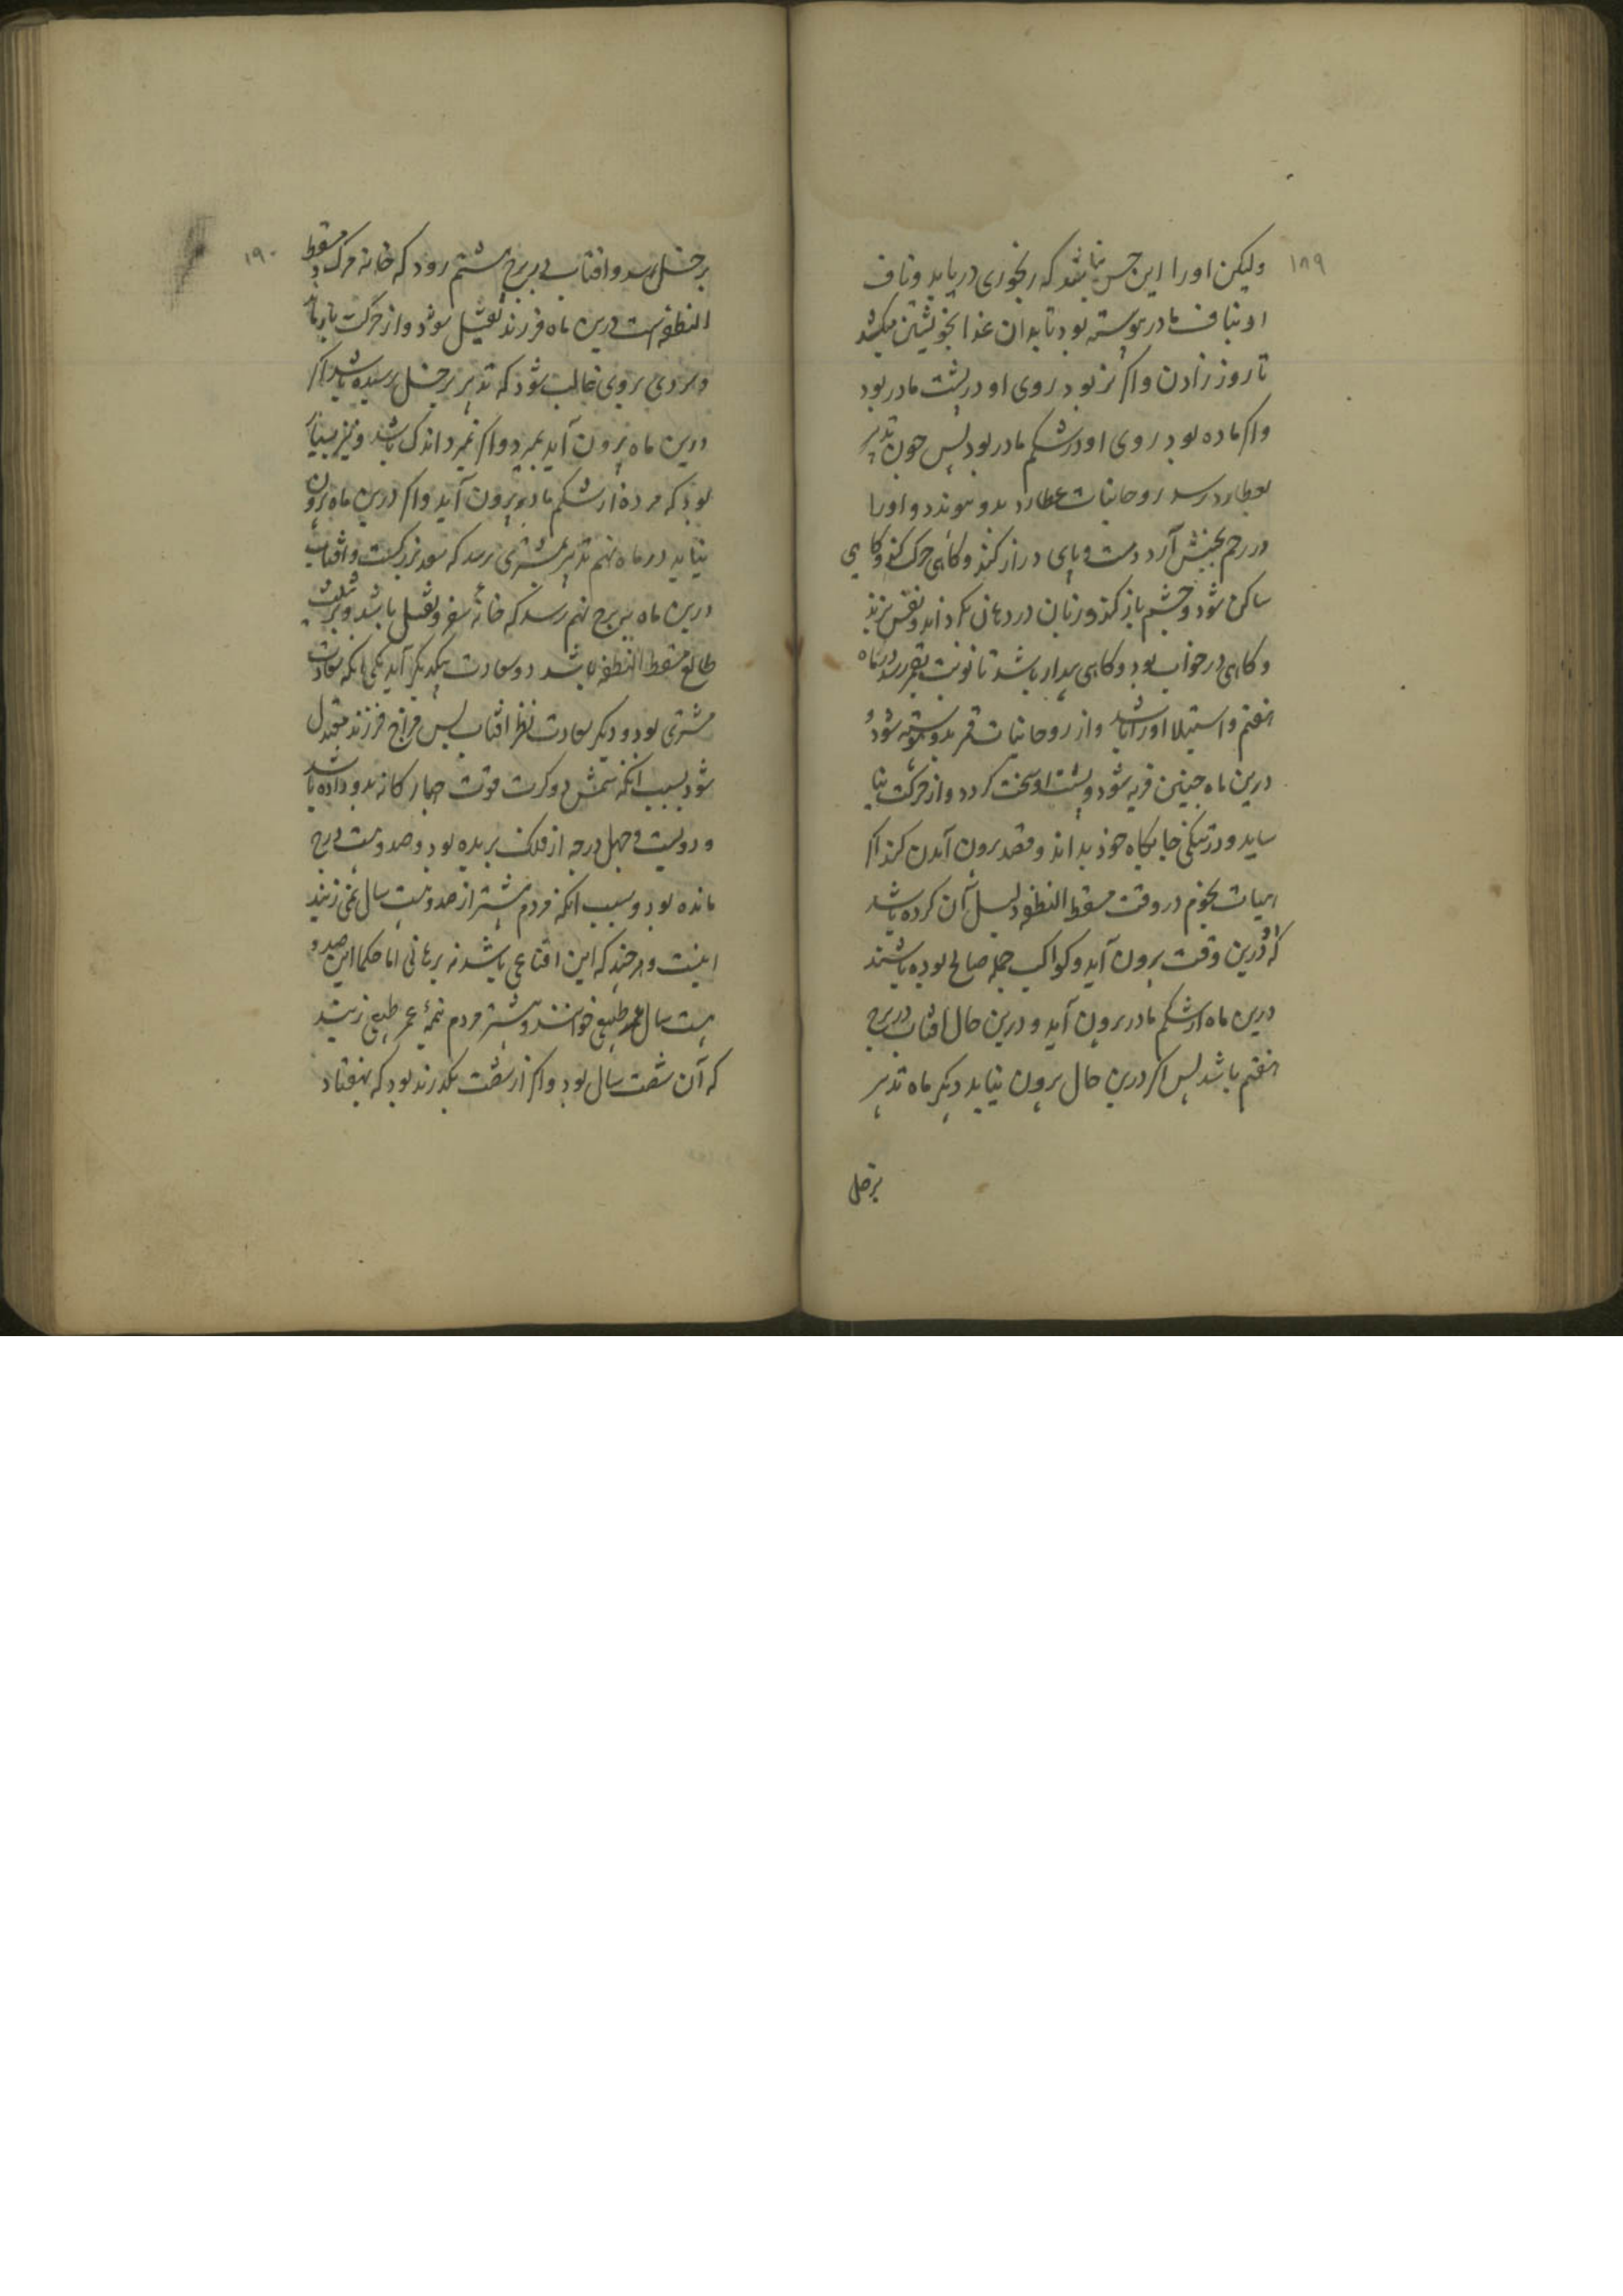 ۱۸۹
ولیکن اورا این حس نباشد که رنجوری دریابد و ناف
او بناف مادر پیوسته بود تا بدان غذا بخویشتن میکشد
تا روز زادن و اکر نر بود روی او در پشت مادر بود
و اکر ماده بود روی او در شکم مادر بود پس چون تدبیر
بعطارد رسد روحانیات عطارد بدو پیوندد و اورا
در رحم بجنبش آرد دست و پای دراز کند و کاهی حرکت کند و کاهی
ساکن شود و چشم باز کند و زبان در دهان بکرداند و نفس بزند
و کاهی در خواب بود و کاهی بیدار باشد تا نوبت بقمر رسد در ماه
هفتم و استیلا اورا باشد و از روحانیات قمر بدو پیوسته شود و
درین ماه جنین فربه شود و پشت او سخت کردد و از حرکت نیا
ساید و در تنکی جایکاه خود بداند و قصد برون آمدن کند اکر
هیات نجوم در وقت مسقط النطفه دلیل آن کرده باشد
که درین وقت برون آید و کواکب جمله صالح بوده باشند
درین ماه از شکم مادر برون آید و درین حال افتاب در برج
هفتم باشد پس اکر درین حال برون نیاید دیکر ماه تدبیر
بزحل
۱۹۰
بزحل رسد و افتاب در برج هشتم رود که خانه مرک مسقط
النطفه است درین ماه فرزند ثقیل شود و از حرکت باز ماند
و سردی بروی غالب شود که تدبیر بزحل رسیده باشد اکر
درین ماه برون آید بمیرد و اکر نمیرد اندک باشد و نیز بسیار
بود که مرده از شکم مادر برون آید و اکر درین ماه برون
نیاید در ماه نهم تدبیر بمشتری رسد که سعد بزرکست و افتاب
درین ماه ببرج نهم رسد که خانه سفر و نقل باشد و بر تثلیث
طالع مسقط النطفه باشد دو سعادت بیکدیکر آید یکی انکه سعادت
مشتری بود و دیکر سعادت نظر افتاب پس مزاج فرزند معتدل
شود بسبب انکه شمس دو کرت قوت چهار کانه بدو داده باشد
و دویست و چهل درجه از فلک بریده بود و صد و بیست درج
مانده بود و سبب انکه مردم بیشتر از صد و بیست سال نمی زیند
اینست و هر چند که این اقناعی باشد نه برهانی اما حکما این صد و
بیست سال عمر طبیعی خوانند و بیشتر مردم نیمهٔ عمر طبیعی زیند
که آن شصت سال بود و اکر از شصت بکذرند بود که بهفتاد